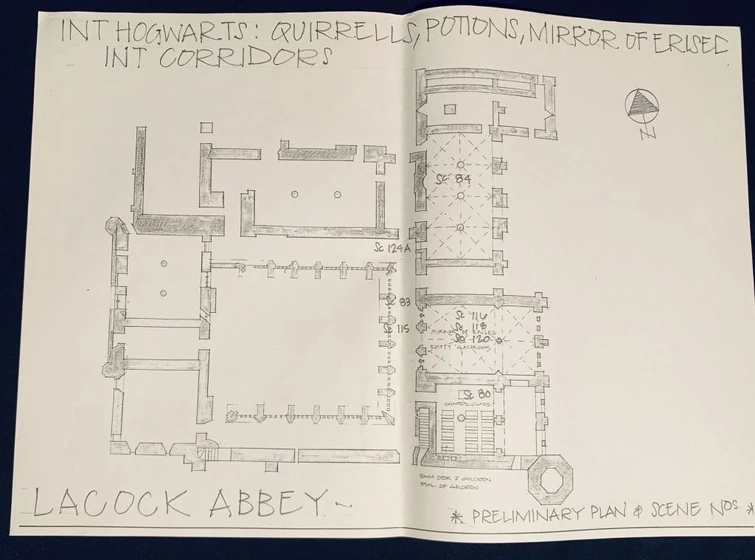 INT HOGWARTS: QUIRRELLS, POTIONS, MIRROR OF ERISED
INT CORRIDORS
N
Sc 84
Sc 124A
Sc 83
Sc 116
115
Sc 118
MIRROR OF ERISED
Sc 120
EMPTY CLASSROOM
Sc 80
EACH DESK 2 CHILDREN
CHILDREN
LACOCK ABBEY
* PRELIMINARY PLAN & SCENE NOS. *